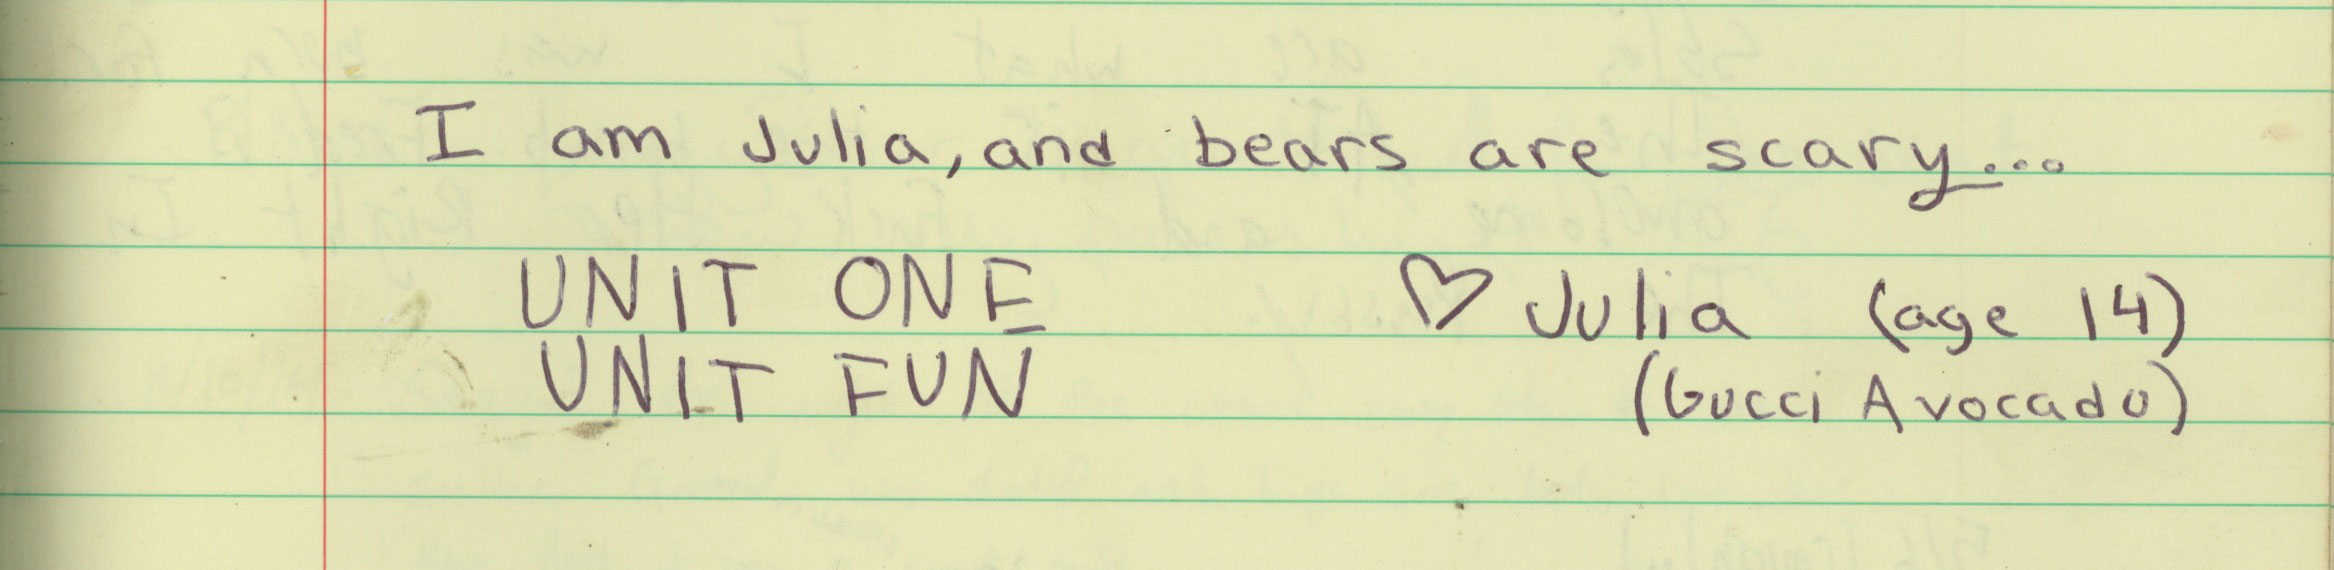 I am Julia, and bears are scary...
UNIT ONE
UNIT FUN
♡ Julia (age 14)
(Gucci Avocado)